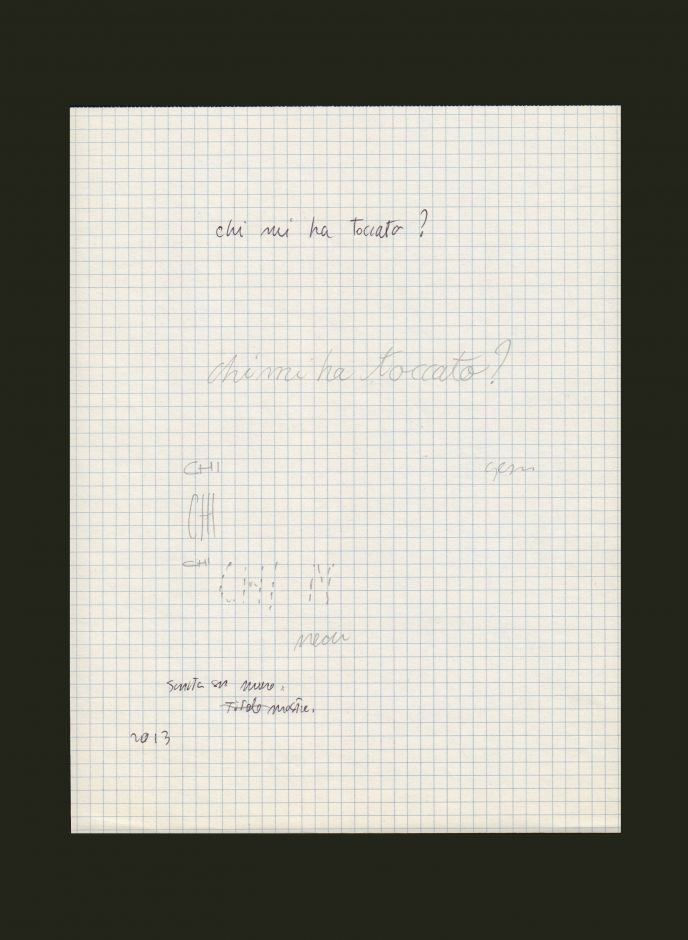 chi mi ha toccato?
chi mi ha toccato?
CHI
CHI
CHI CHI M
neon
scritta su muro.
Titolo mostre.
2013